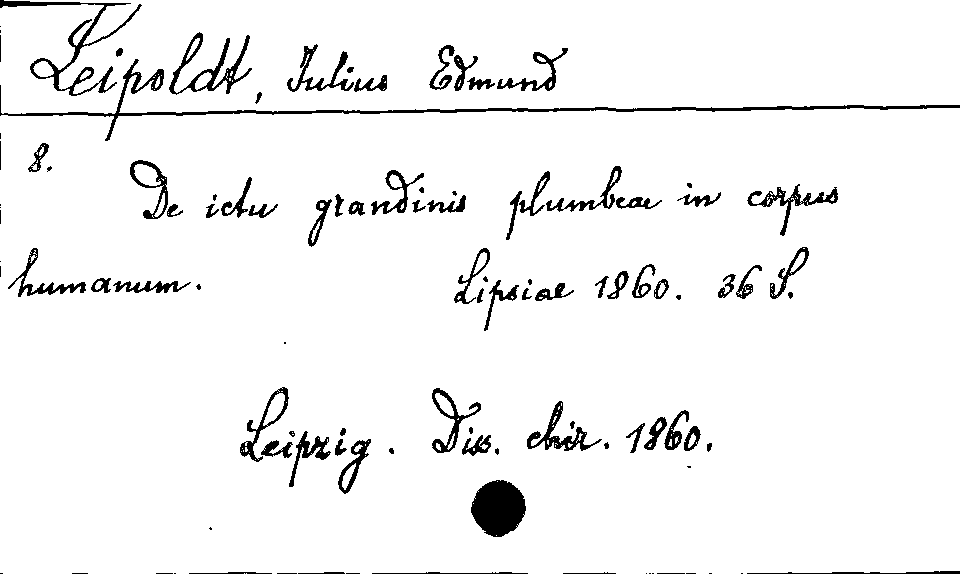 Leipoldt, Julius Edmund
8. De ictu grandinis plumbeae in corpus
humanum. Lipsiae 1860. 36 S.
Leipzig. Diss. chir. 1860.